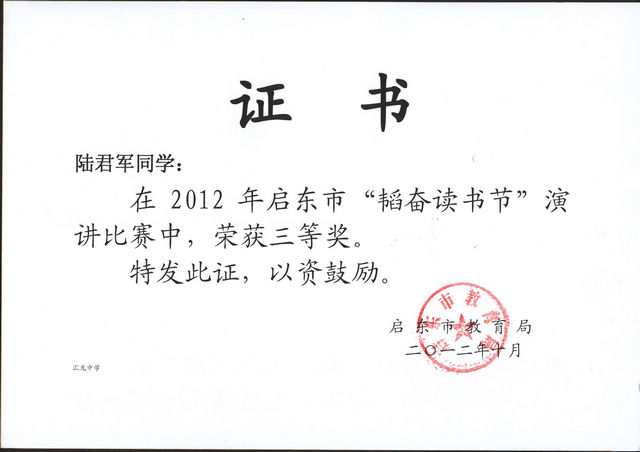 证 书
陆君军同学：
在 2012 年启东市“韬奋读书节”演
讲比赛中，荣获三等奖。
特发此证，以资鼓励。
启东市教育局
启东市教育局
二〇一二年十月
汇龙中学